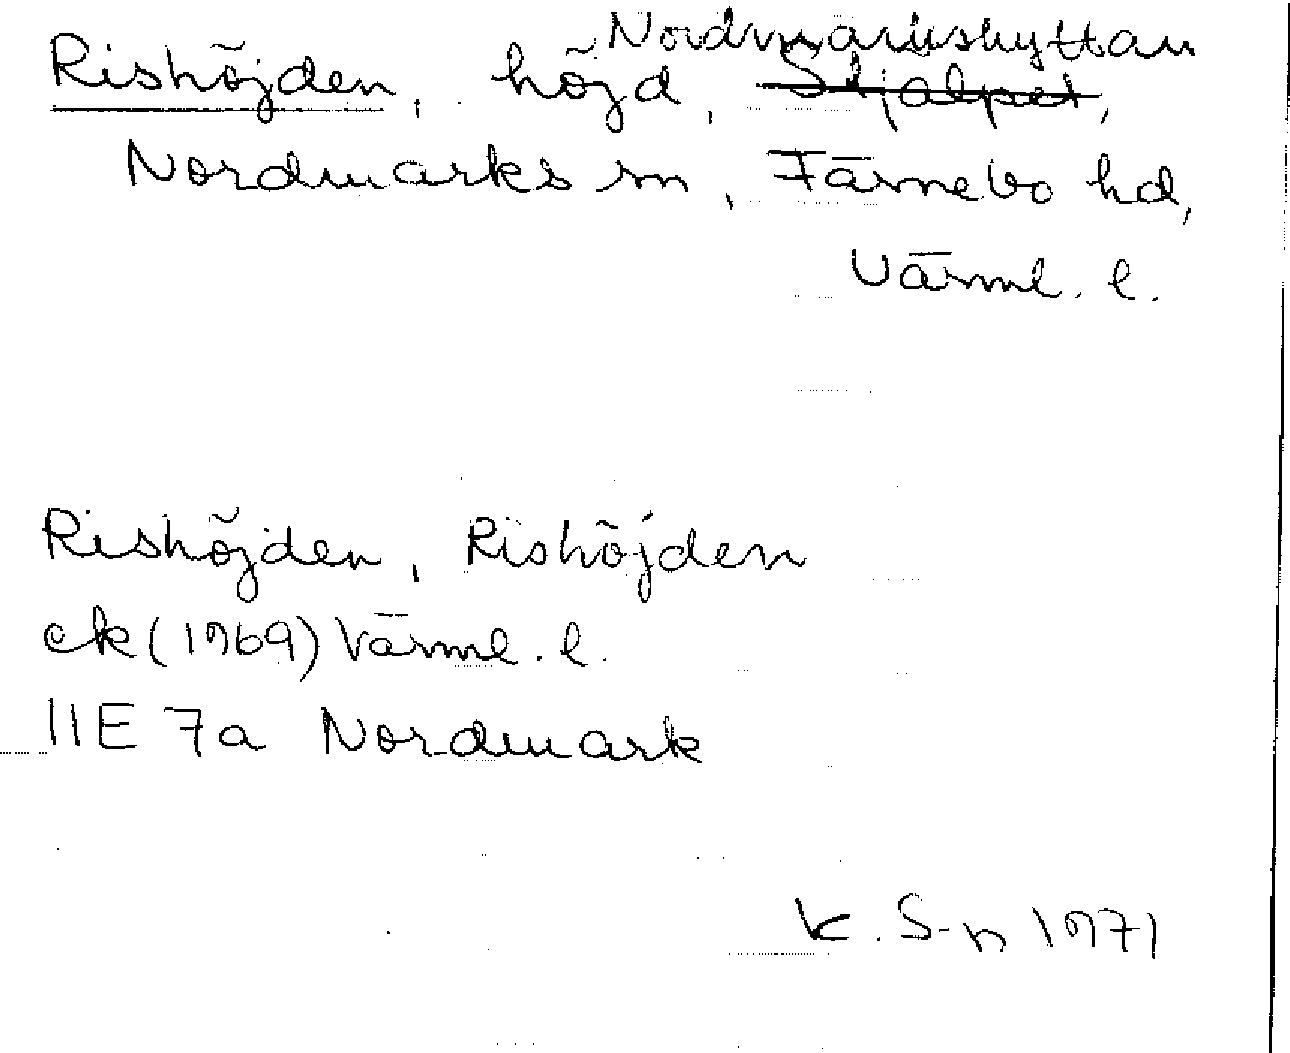 Nordmarkshyttan
Rishöjden, höjd, Stjälpet,
Nordmarks sn, Färnebo hd,
Värml. l.
Rishöjden, Rishöjden
ek (1969) Värml. l.
11E 7a Nordmark
K. S-n 1971